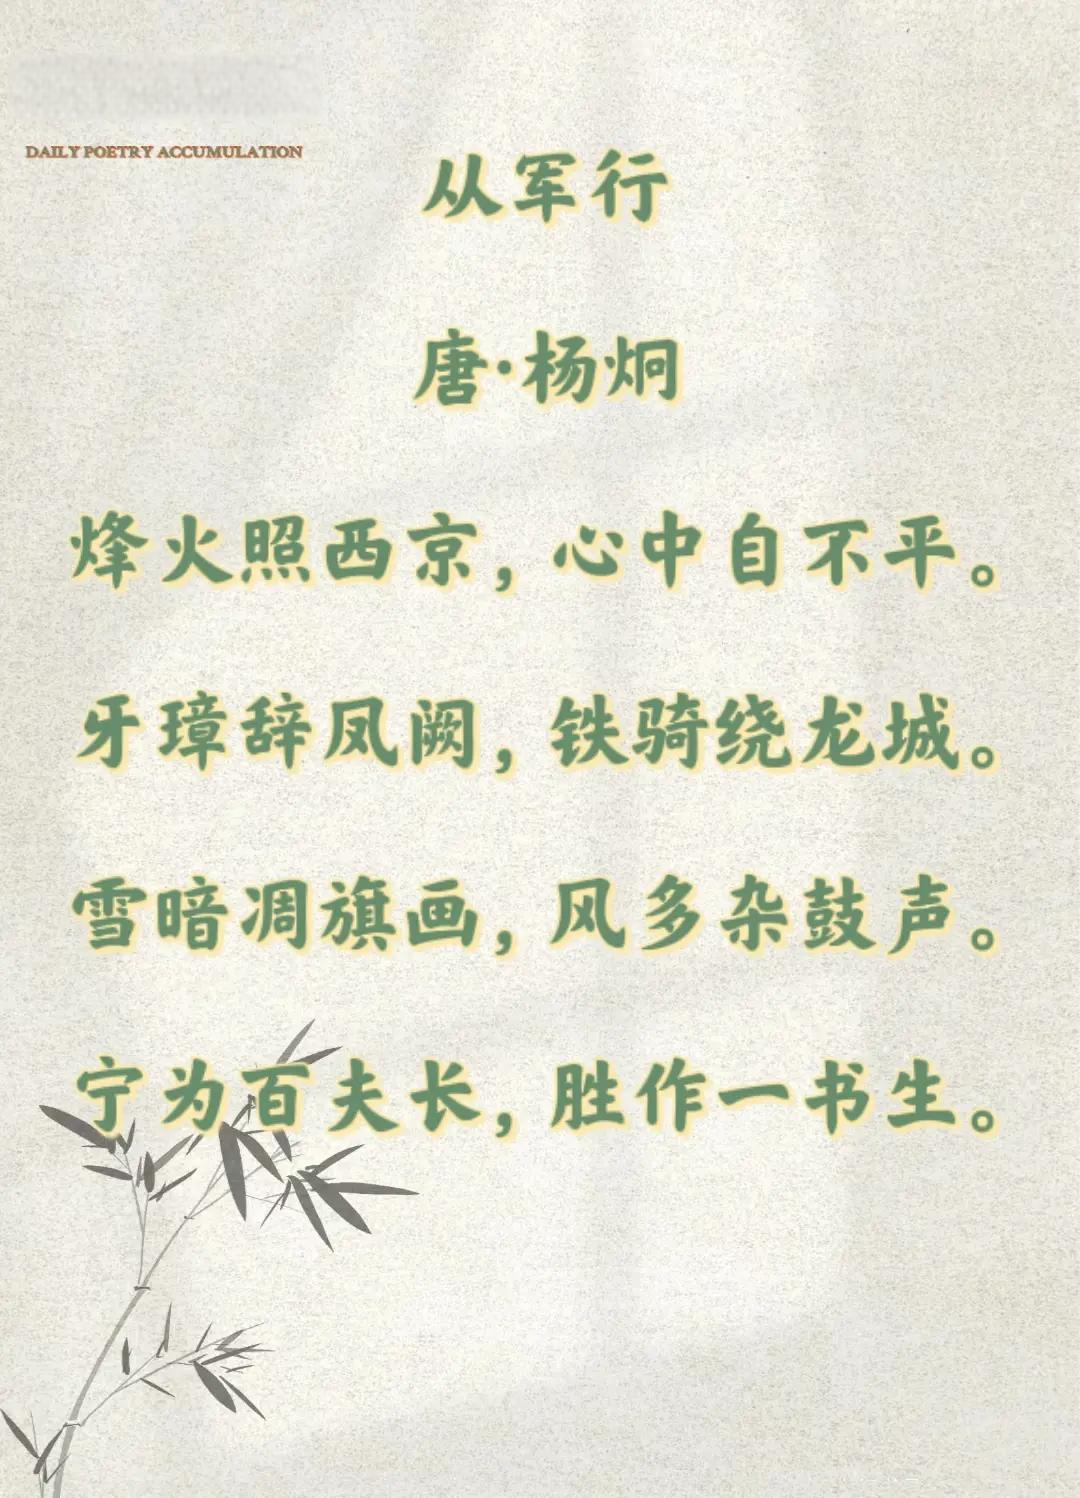 DAILY POETRY ACCUMULATION
从军行
唐·杨炯
烽火照西京，心中自不平。
牙璋辞凤阙，铁骑绕龙城。
雪暗凋旗画，风多杂鼓声。
宁为百夫长，胜作一书生。